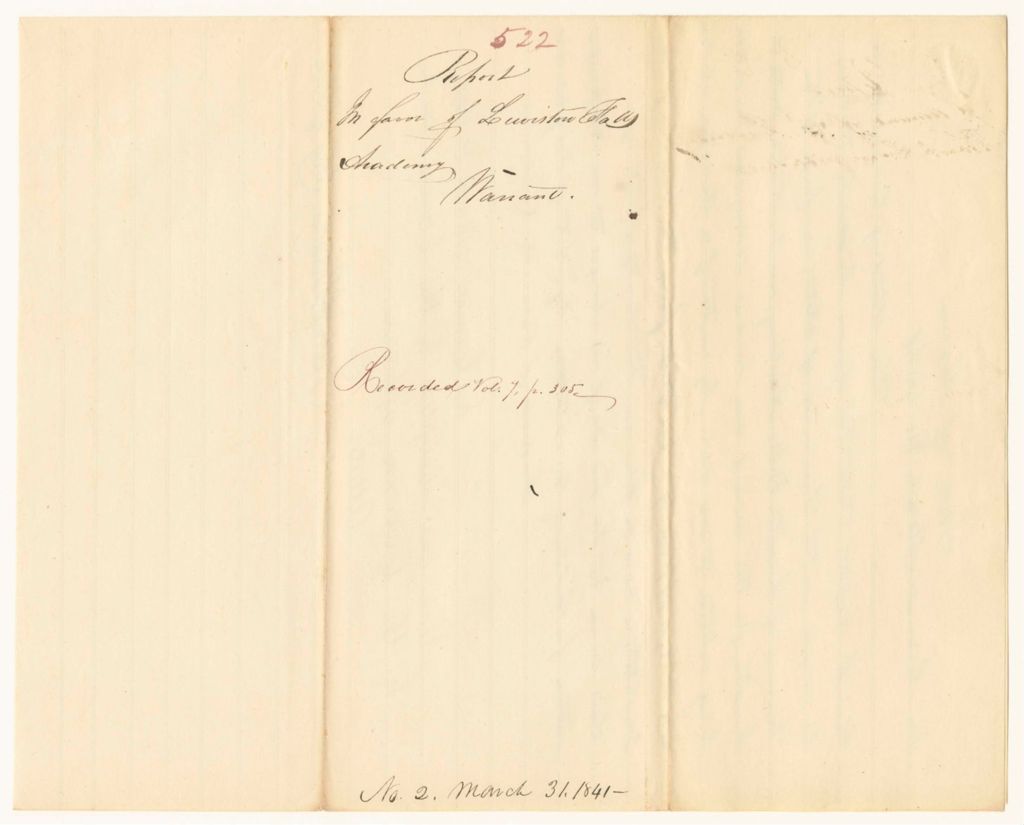 522
Report
In favor of Lewiston Falls
Academy
Warrant.
Recorded Vol. 7, p. 305
No. 2. March 31. 1841-